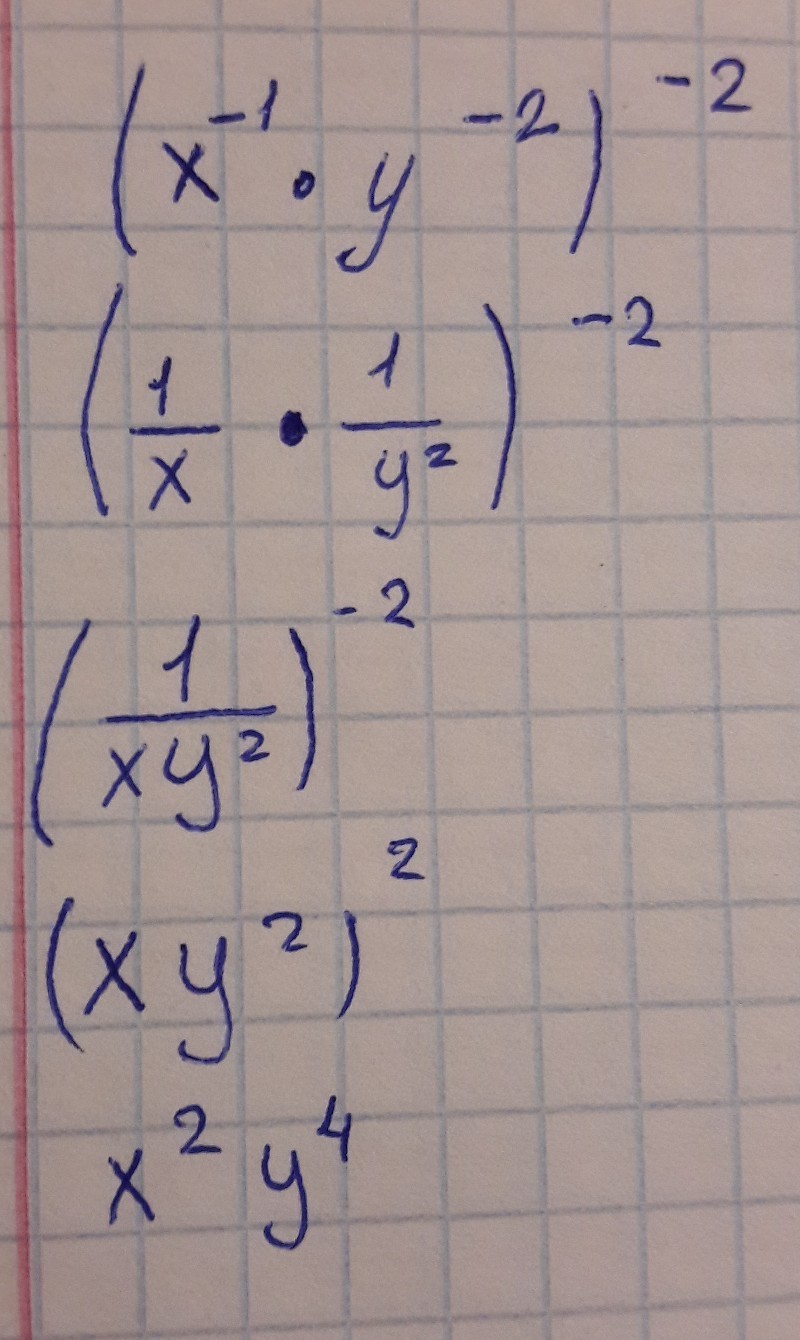 (x⁻¹ · y⁻²)⁻²
(1/x · 1/y²)⁻²
(1/xy²)⁻²
(xy²)²
x²y⁴